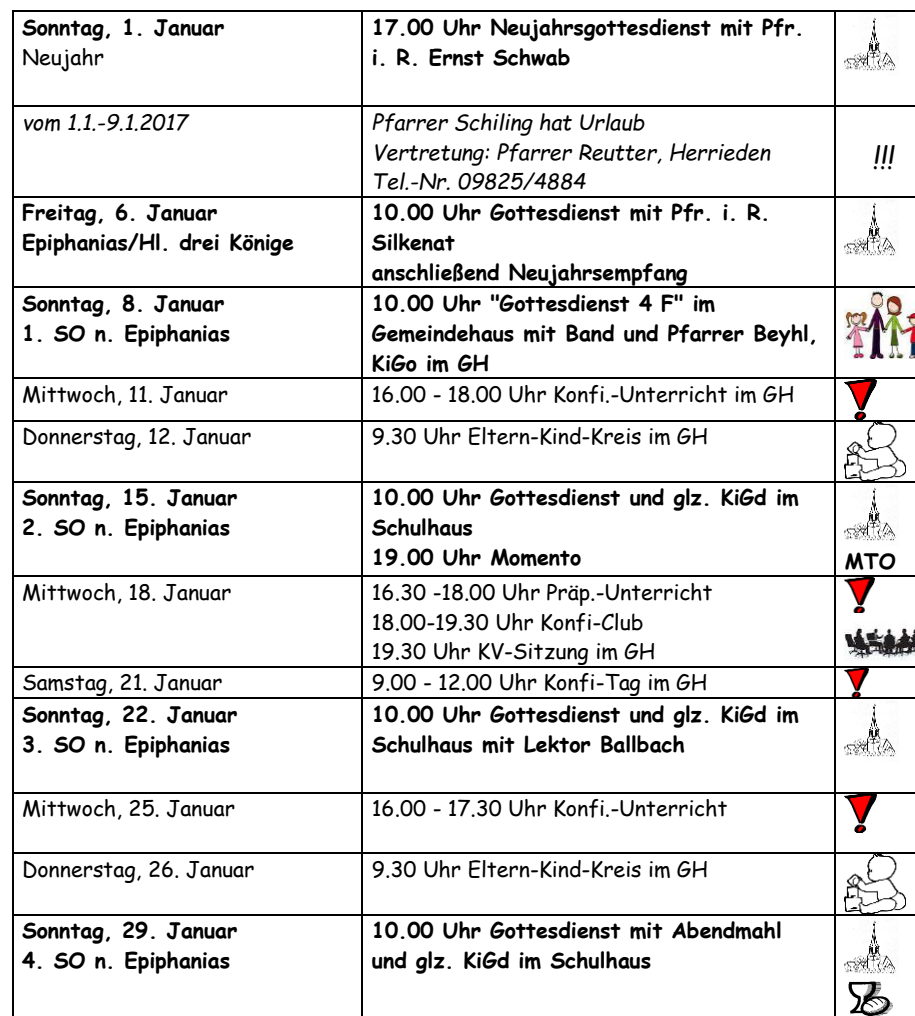 Sonntag, 1. Januar
Neujahr
17.00 Uhr Neujahrsgottesdienst mit Pfr.
i. R. Ernst Schwab
vom 1.1.-9.1.2017
Pfarrer Schiling hat Urlaub
Vertretung: Pfarrer Reutter, Herrieden
Tel.-Nr. 09825/4884
!!!
Freitag, 6. Januar
Epiphanias/Hl. drei Könige
10.00 Uhr Gottesdienst mit Pfr. i. R.
Silkenat
anschließend Neujahrsempfang
Sonntag, 8. Januar
1. SO n. Epiphanias
10.00 Uhr "Gottesdienst 4 F" im
Gemeindehaus mit Band und Pfarrer Beyhl,
KiGo im GH
Mittwoch, 11. Januar
16.00 - 18.00 Uhr Konfi.-Unterricht im GH
Donnerstag, 12. Januar
9.30 Uhr Eltern-Kind-Kreis im GH
Sonntag, 15. Januar
2. SO n. Epiphanias
10.00 Uhr Gottesdienst und glz. KiGd im
Schulhaus
19.00 Uhr Momento
MTO
Mittwoch, 18. Januar
16.30 -18.00 Uhr Präp.-Unterricht
18.00-19.30 Uhr Konfi-Club
19.30 Uhr KV-Sitzung im GH
Samstag, 21. Januar
9.00 - 12.00 Uhr Konfi-Tag im GH
Sonntag, 22. Januar
3. SO n. Epiphanias
10.00 Uhr Gottesdienst und glz. KiGd im
Schulhaus mit Lektor Ballbach
Mittwoch, 25. Januar
16.00 - 17.30 Uhr Konfi.-Unterricht
Donnerstag, 26. Januar
9.30 Uhr Eltern-Kind-Kreis im GH
Sonntag, 29. Januar
4. SO n. Epiphanias
10.00 Uhr Gottesdienst mit Abendmahl
und glz. KiGd im Schulhaus